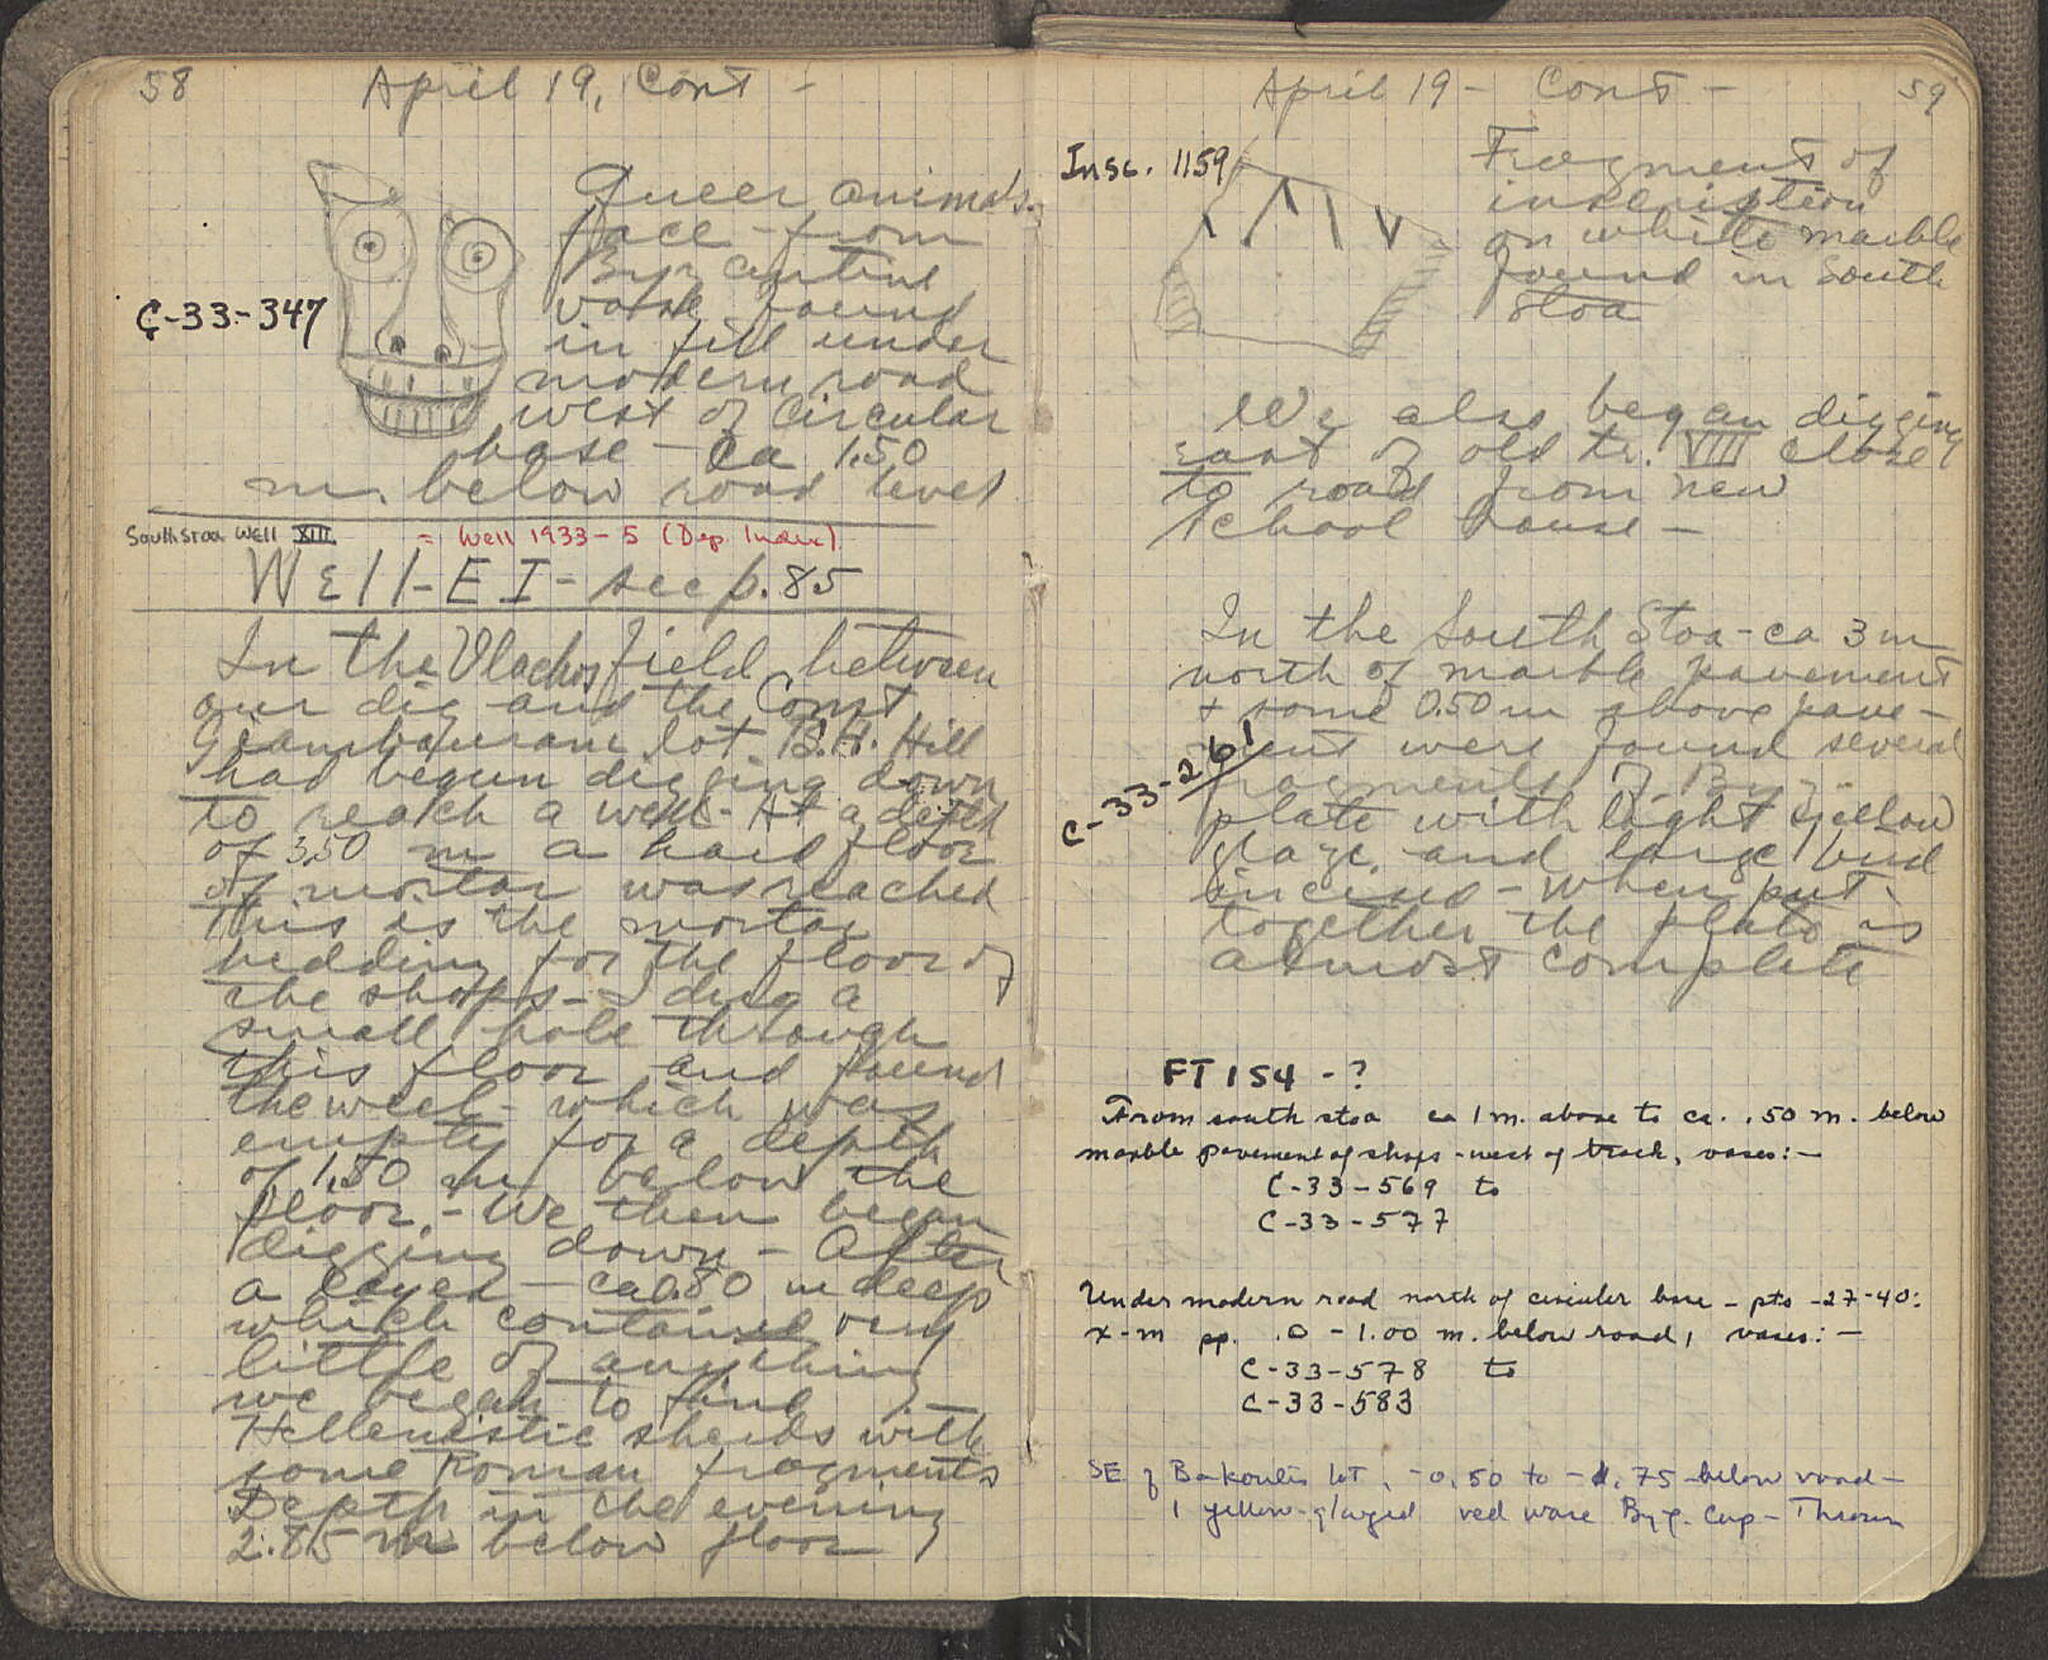 58
April 19, Cont -
Queer animal's
face - from
Byzantine
vase found
in fill under
C-33-347
modern road
west of Circular
base - ca 1.50
m. below road level
South Stoa Well XIII = Well 1933-5 (Dep. Index)
Well - E I - see p. 85
In the Vlachos field between
our dig and the Const.
lot B.H. Hill
had begun digging down
to reach a well - At a depth
of 3.50 m a hard floor
of mortar was reached
This is the mortar
bedding for the floor of
the shops - I dug a
small hole through
this floor and found
the well - which was
empty for a depth
of 1.50 m below the
floor. - We then began
digging down - After
a layer - ca 0.80 m deep
which contained very
little of anything
we began to find
Hellenistic sherds with
some Roman fragments
Depth in the evening
2.85 m below floor
April 19 - Cont -
59
Insc. 1159
Fragment of
inscription
on white marble
found in South
Stoa
We also began digging
east of old tr. VIII close
to road from new
school house -
In the South Stoa - ca 3 m
north of marble pavement
+ some 0.50 m above pave-
ment were found several
C-33-261
fragments of Byz.
plate with light yellow
glaze and large bird
incised - When put
together the plate is
almost complete
FT 154 - ?
From south stoa ca 1 m. above to ca. .50 m. below
marble pavement of shops - west of track, vases: -
C-33-569 to
C-33-577
Under modern road north of circular base - pts -27-40:
x-m pp. .0 - 1.00 m. below road, vases: -
C-33-578 to
C-33-583
SE of Bakoulis lot, -0.50 to -1.75 below road -
1 yellow-glazed red ware Byz. Cup - Thrown